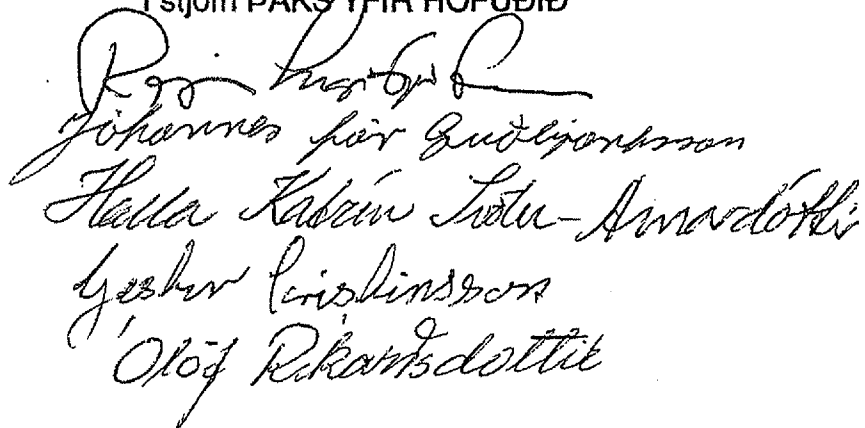 Í stjórn ÞAKS YFIR HÖFUÐIÐ
Jóhannes Þór Guðbjartsson
Halla Katrín Arnardóttir
Gestur Kristinsson
Ólöf Ríkarðsdóttir